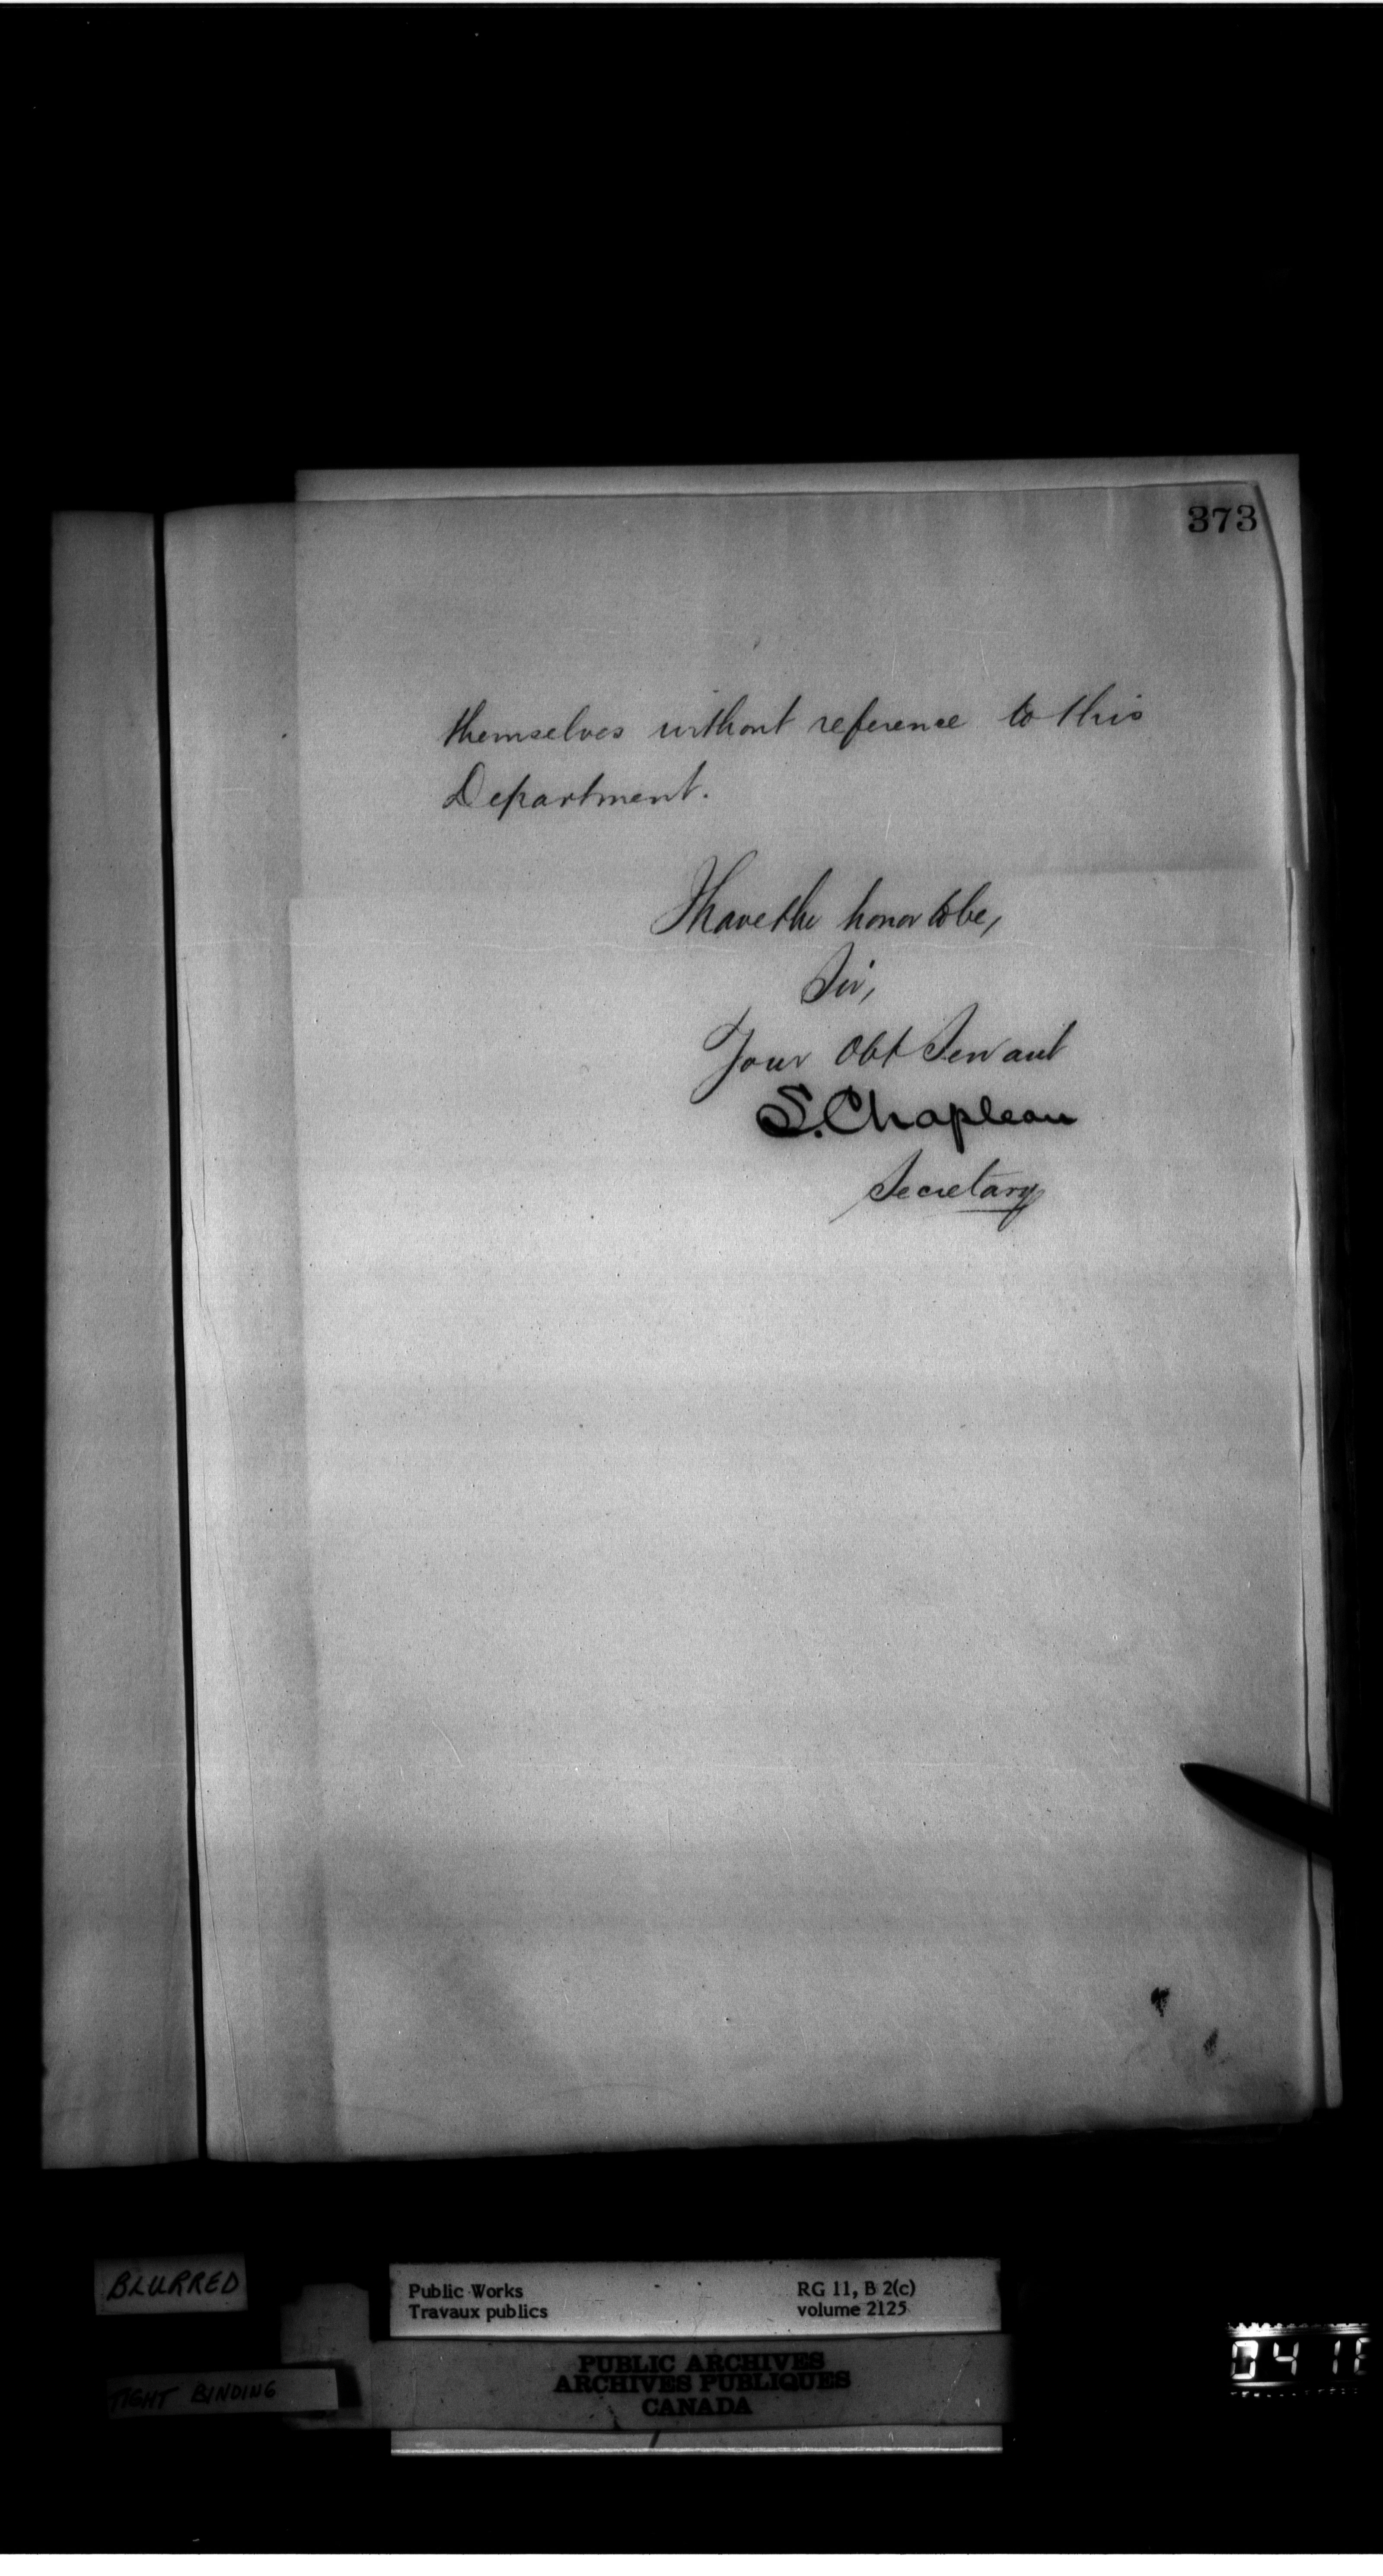 373
themselves without reference to this
Department.
I have the honor to be,
Sir,
Your Obt Servant
S. Chapleau
Secretary
BLURRED
TIGHT BINDING
Public Works
Travaux publics
RG 11, B 2(c)
volume 2125
PUBLIC ARCHIVES
ARCHIVES PUBLIQUES
CANADA